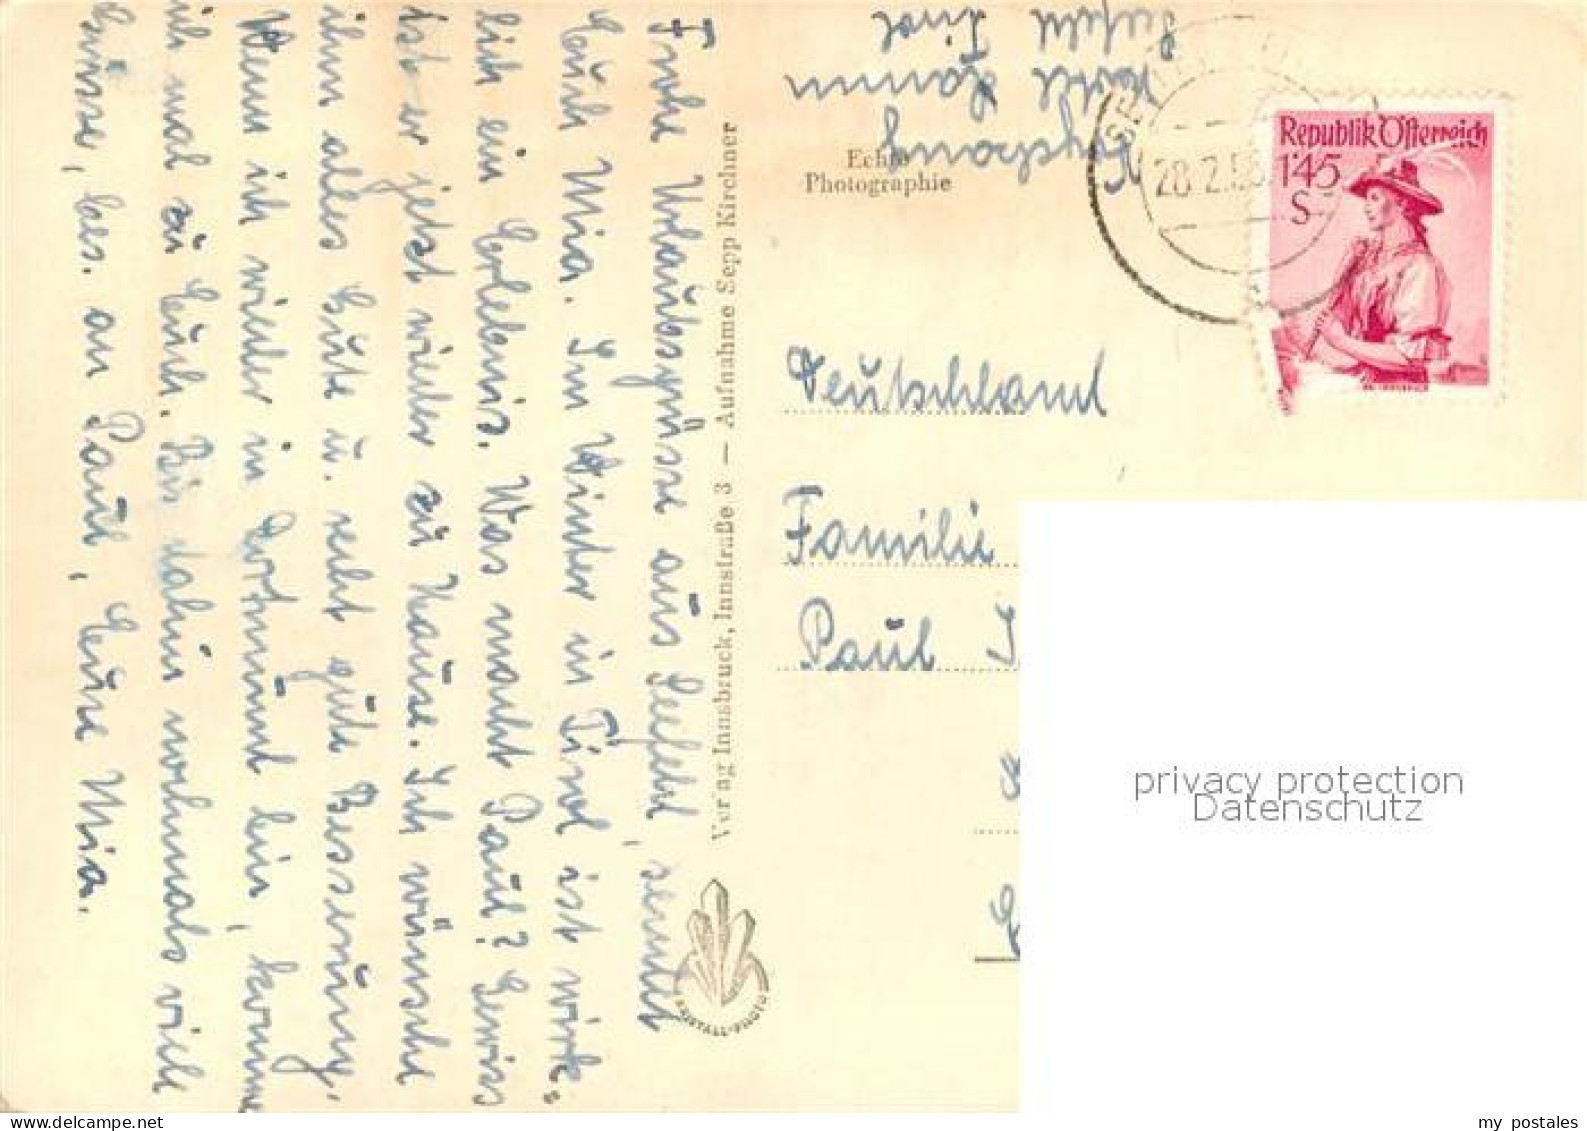 Frohe Urlaubsgrüsse aus Seefeld, sendet
Euch Mia. Im Winter in Tirol ist wirk=
lich ein Erlebnis. Was macht Paul? Gewiss
ist er jetzt wieder zu Hause. Ich wünsche
ihm alles Gute u. recht gute Besserung,
Wenn ich wieder in Dortmund bin, komme
ich mal zu Euch. Bis dahin nochmals viele
Grüsse, bes. an Paul, Eure Mia.
Verlag Innsbruck, Innstraße 3 — Aufnahme Sepp Kirchner
KRISTALL-PHOTO
Hotel
Seefeld Tirol
Echte
Photographie
28.2.5
Republik Österreich
1'45
S
Deutschland
Familie
Paul
privacy protection
Datenschutz
my postales